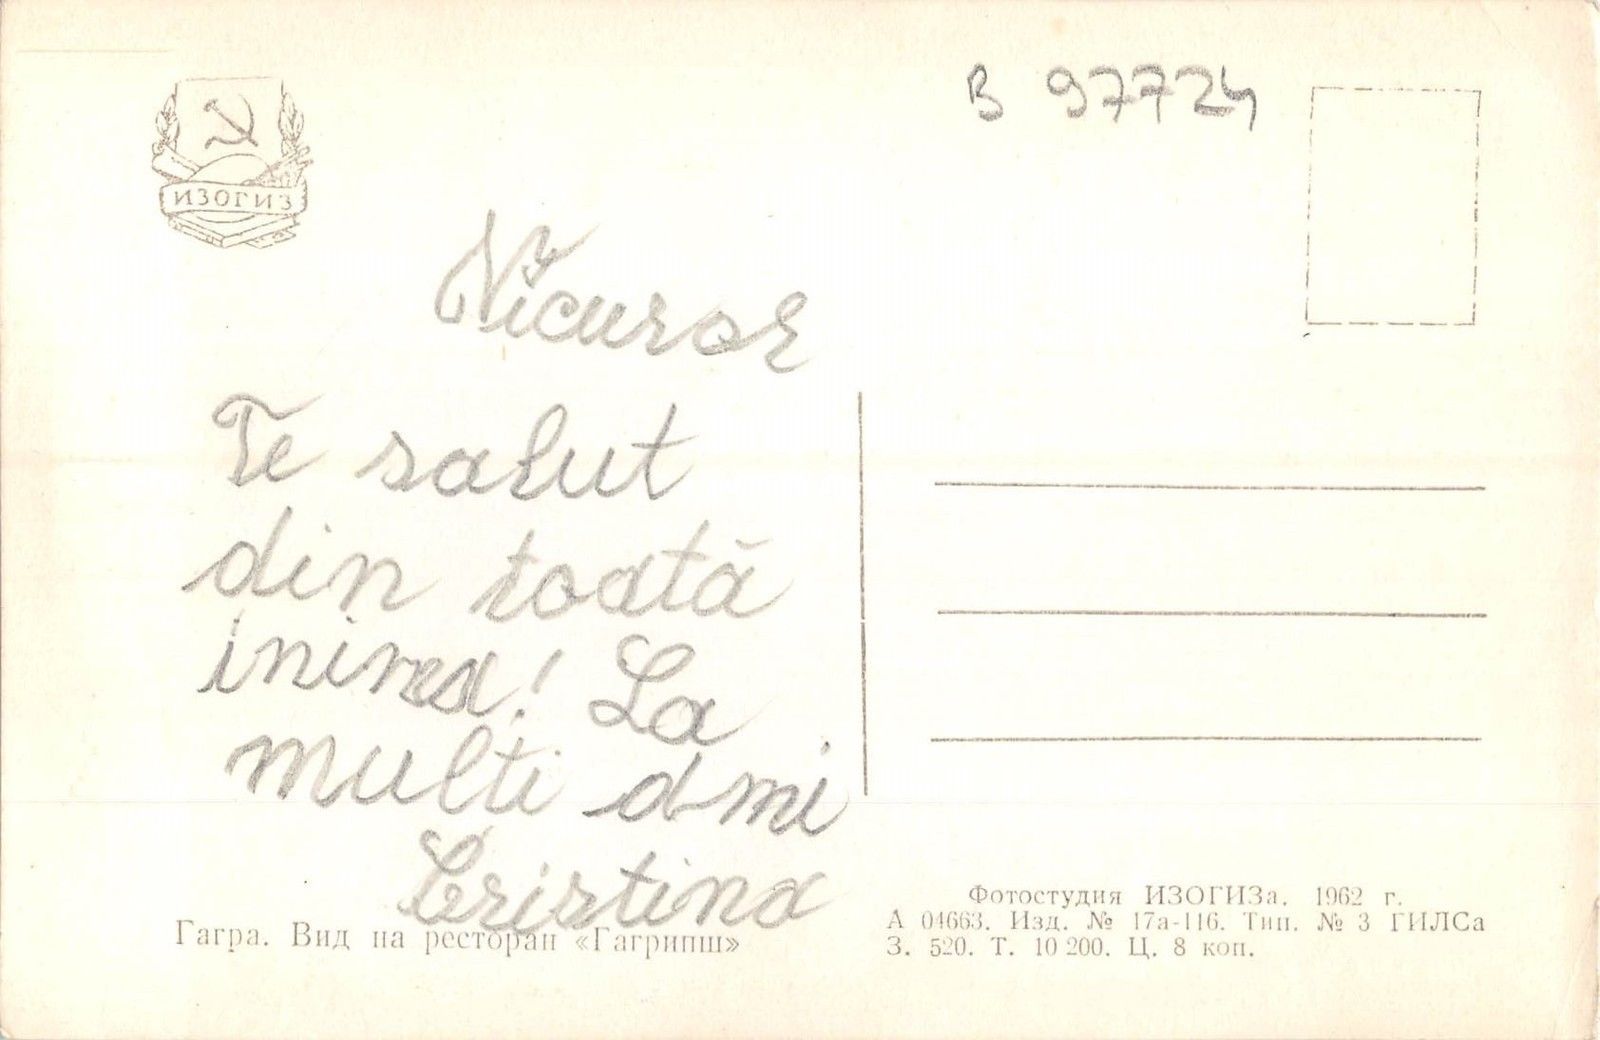 В 97724
ИЗОГИЗ
Nicușor
Te salut
din toată
inima! La
multi ani
Cristina
Гагра. Вид на ресторан «Гагрипш»
Фотостудия ИЗОГИЗа. 1962 г.
А 04663. Изд. № 17а-116. Тип. № 3 ГИЛСа
З. 520. Т. 10 200. Ц. 8 коп.